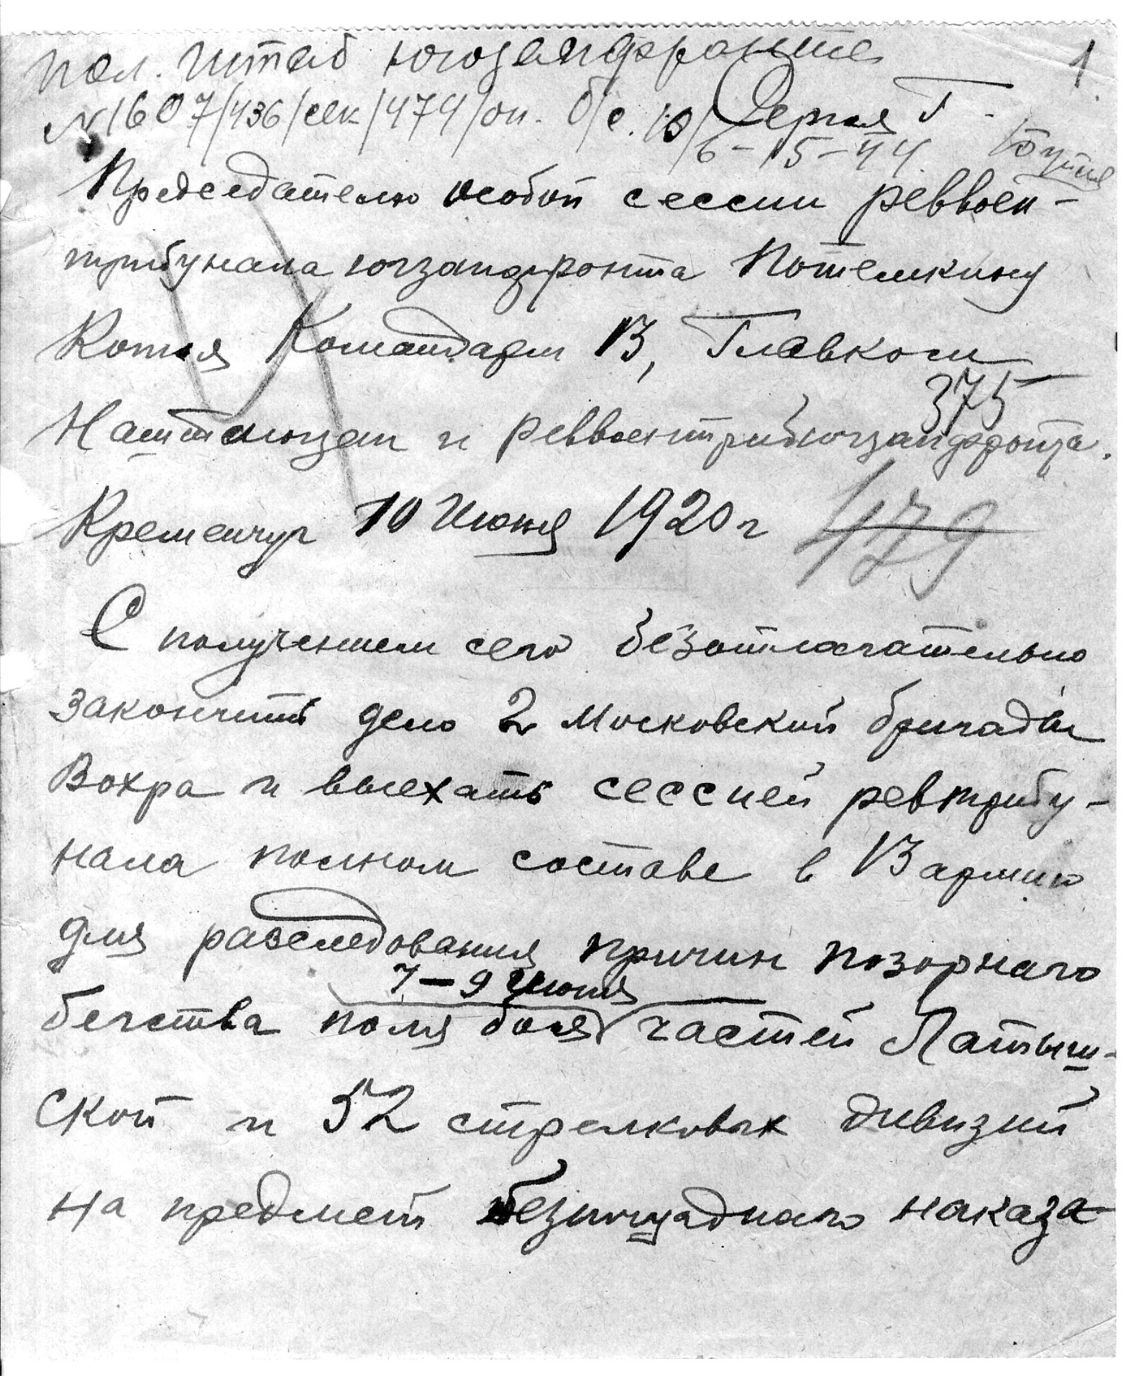 пол. штаб югозапфронта
1
№ 1607/436/сек/474/оп. б/с. 10/ Серия Г.
6-15-44
Председателю особой сессии реввоен-
трибунала югзапфронта Потемкину
Копия Командарм 13, Главком
375
Наштаюзап и реввоентрибюгзапфронта.
Кременчуг 10 Июня 1920 г
479
С получением сего безотлагательно
закончить дело 2 Московской бригады
Вохра и выехать сессией ревтрибу-
нала полном составе в 13 армию
для расследования причин позорнаго
7-9 Июня
бегства поля боя частей Латыш-
ской и 52 стрелковых дивизий
на предмет безпощаднаго наказа